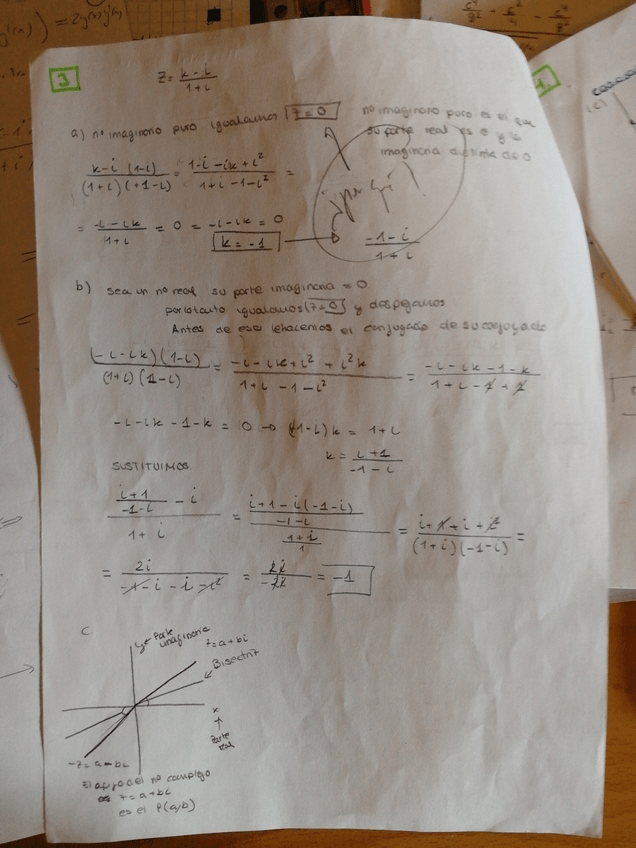 3
z = (k-i)/(1+i)
a) nº imaginario puro igualamos z=0
nº imaginario puro es el que
su parte real es 0 y la
imaginaria distinta de 0
(k-i)(1-i)/((1+i)(+1-i)) = (1-i-ik+i²)/(1+i-1-i²) =
= (-i-ik)/(1+i) = 0 = -i-ik = 0
k = -1
(-1-i)/(1+i)
b) sea un nº real su parte imaginaria = 0
por lo tanto igualamos z=0 y despejamos
Antes de eso le hacemos el conjugado de su conjugado
(-i-ik)(1-i)/((1+i)(1-i)) = (-i-ik+i²+i²k)/(1+i-1-i²) = (-i-ik-1-k)/(1+i-1+1)
-i-ik-1-k = 0 → (-1-i)k = 1+i
k = (i+1)/(-1-i)
SUSTITUIMOS
((i+1)/(-1-i) - i)/(1+i) = ((i+1-i(-1-i))/(-1-i))/((1+i)/1) = (i+1+i+i²)/((1+i)(-1-i)) =
= 2i/(-1-i-i-i²) = 2i/-2i = -1
c
y = Parte
imaginaria
z=a+bi
Bisectriz
x
Parte
real
-z=a-bi
El afijo del nº complejo
z=a+bi
es el P(a,b)